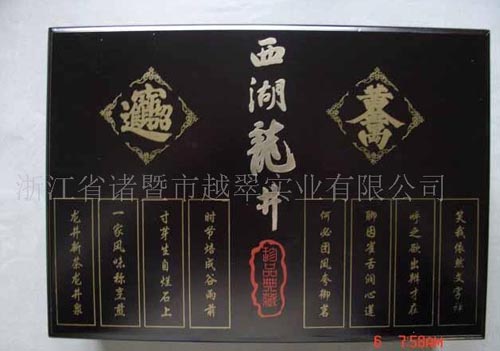 西湖龍井
珍品典藏
浙江省诸暨市越翠实业有限公司
龙井新茶龙井泉
一家风味称烹煎
寸芽生自烂石上
时节焙成谷雨前
何必团凤夸御茗
聊因雀舌润心莲
呼之欲出辩才在
笑我依然文字禅
6 7:58AM